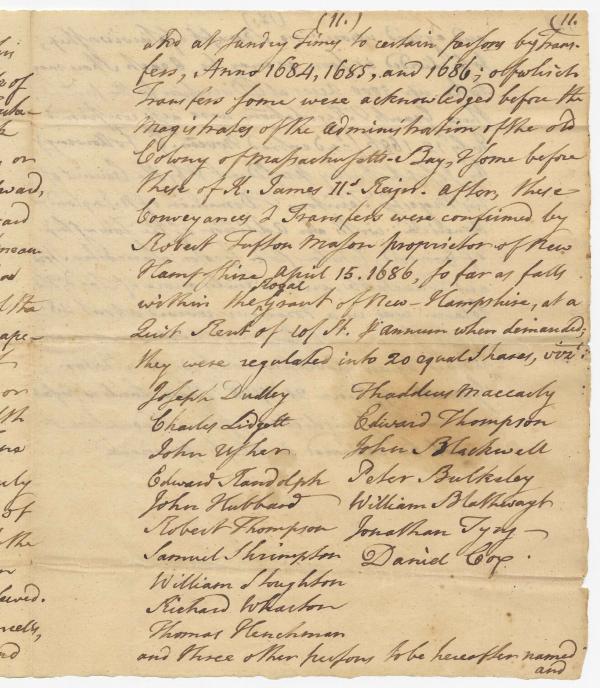 (11.) (11.
and at sundry Times to certain persons by Trans-
fers, Anno 1684, 1685, and 1686; of which
Transfers some were acknowledged before the
Magistrates of the administration of the old
Colony of Massachusetts-Bay, & some before
these of K. James IId Reign. after, these
Conveyances & Transfers were confirmed by
Robert Tufton Mason proprietor of New
Hampshire, April 15. 1686, so far as falls
within the Royal Grant of New-Hampshire, at a
Quit Rent of 10/ St. ⅌ annum when demanded;
they were regulated into 20 equal Shares, vizt:
Joseph Dudley Thaddeus Maccarly
Charles Lidgett Edward Thompson
John Usher John Blackwell
Edward Randolph Peter Bulkeley
John Hubbard William Blathwayt
Robert Thompson Jonathan Tyng
Samuel Shrimpton Daniel Cox.
William Stoughton
Richard Wharton
Thomas Henchman
and three other persons to be hereafter named
and